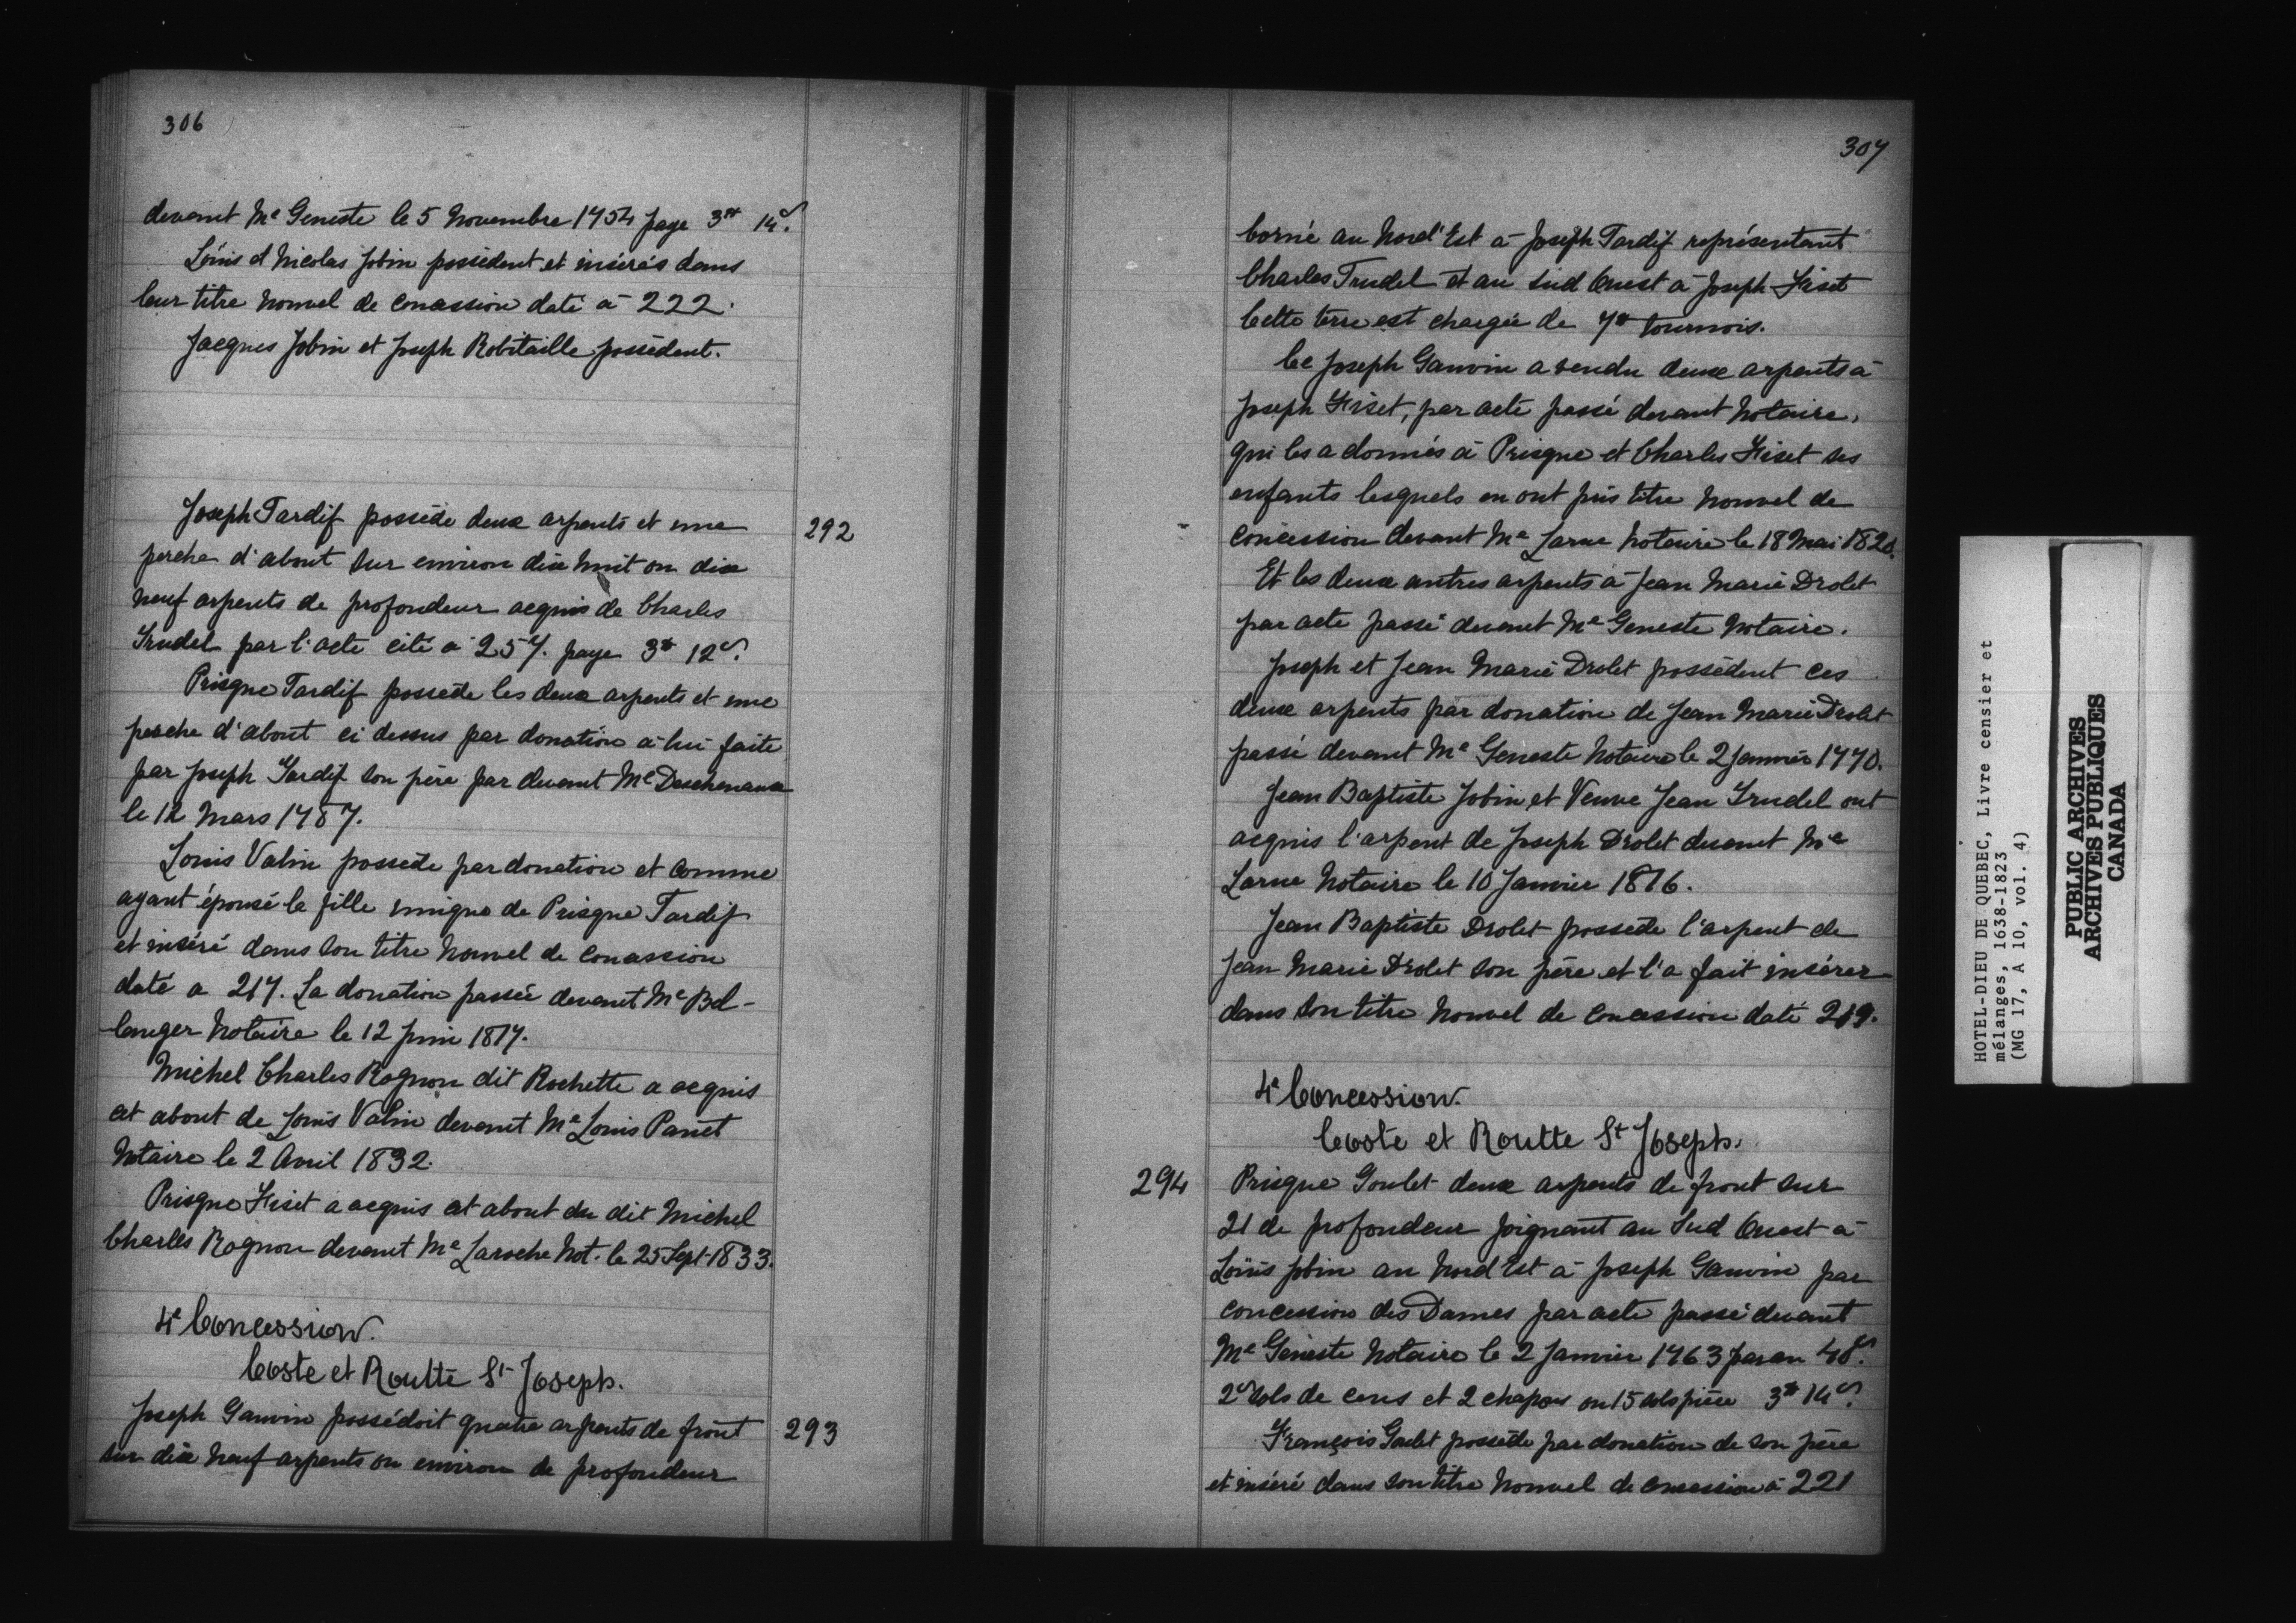 306
devant Me Geneste le 5 Novembre 1754 paye 3# 14s.
Louis et Nicolas Jobin possèdent et insérés dans
leur titre nouvel de concession daté à 222.
Jacques Jobin et Joseph Robitaille possèdent.
Joseph Tardif possède deux arpents et une
292
perche d'about sur environ dix huit ou dix
neuf arpents de profondeur acquis de Charles
Trudel par l'acte cité à 257. paye 3# 12s.
Prisque Tardif possède les deux arpents et une
perche d'about ci dessus par donation à lui faite
par Joseph Tardif son père par devant Me Deschenaux
le 12 Mars 1787.
Louis Valin possède par donation et comme
ayant épousé la fille unique de Prisque Tardif
et inséré dans son titre nouvel de concession
daté a 217. La donation passée devant Me Bel-
langer Notaire le 12 Juin 1817.
Michel Charles Rognon dit Rochette a acquis
cet about de Louis Valin devant Me Louis Panet
Notaire le 2 Avril 1832.
Prisque Fiset a acquis cet about du dit Michel
Charles Rognon devant Me Laroche Not. le 25 Sept. 1833.
4e Concession.
Coste et Routte St Joseph.
Joseph Gauvin possédoit quatre arpents de front
293
sur dix neuf arpents ou environ de profondeur
307
borné au Nord'Est à Joseph Tardif représentant
Charles Trudel et au Sud Ouest à Joseph Fiset
Cette terre est chargée de 7# tournois.
Ce Joseph Gauvin a vendu deux arpents à
Joseph Fiset, par acte passé devant Notaire,
qui les a donnés à Prisque et Charles Fiset ses
enfants lesquels en ont pris titre nouvel de
concession devant Me Larue Notaire le 18 Mai 1820.
Et les deux autres arpents à Jean Marie Drolet
par acte passé devant Me Geneste Notaire.
Joseph et Jean Marie Drolet possèdent ces
deux arpents par donation de Jean Marie Drolet
passé devant Me Geneste Notaire le 2 Janvier 1770.
Jean Baptiste Jobin et Veuve Jean Trudel ont
acquis l'arpent de Joseph Drolet devant Me
Larue Notaire le 10 Janvier 1816.
Jean Baptiste Drolet possède l'arpent de
Jean Marie Drolet son père et l'a fait insérer
dans son titre nouvel de concession daté 219.
4e Concession.
Coste et Routte St Joseph.
294
Prisque Goulet deux arpents de front sur
21 de profondeur joignant au Sud Ouest à
Louis Jobin au Nord Est à Joseph Gauvin par
concession des Dames par acte passé devant
Me Geneste Notaire le 2 Janvier 1763 par an 40s.
2s sols de cens et 2 chapons ou 15 sols pièce 3# 14s.
François Goulet possède par donation de son père
et inséré dans son titre nouvel de concession à 221
HOTEL-DIEU DE QUEBEC, Livre censier et
mélanges, 1638-1823
(MG 17, A 10, vol. 4)
PUBLIC ARCHIVES
ARCHIVES PUBLIQUES
CANADA